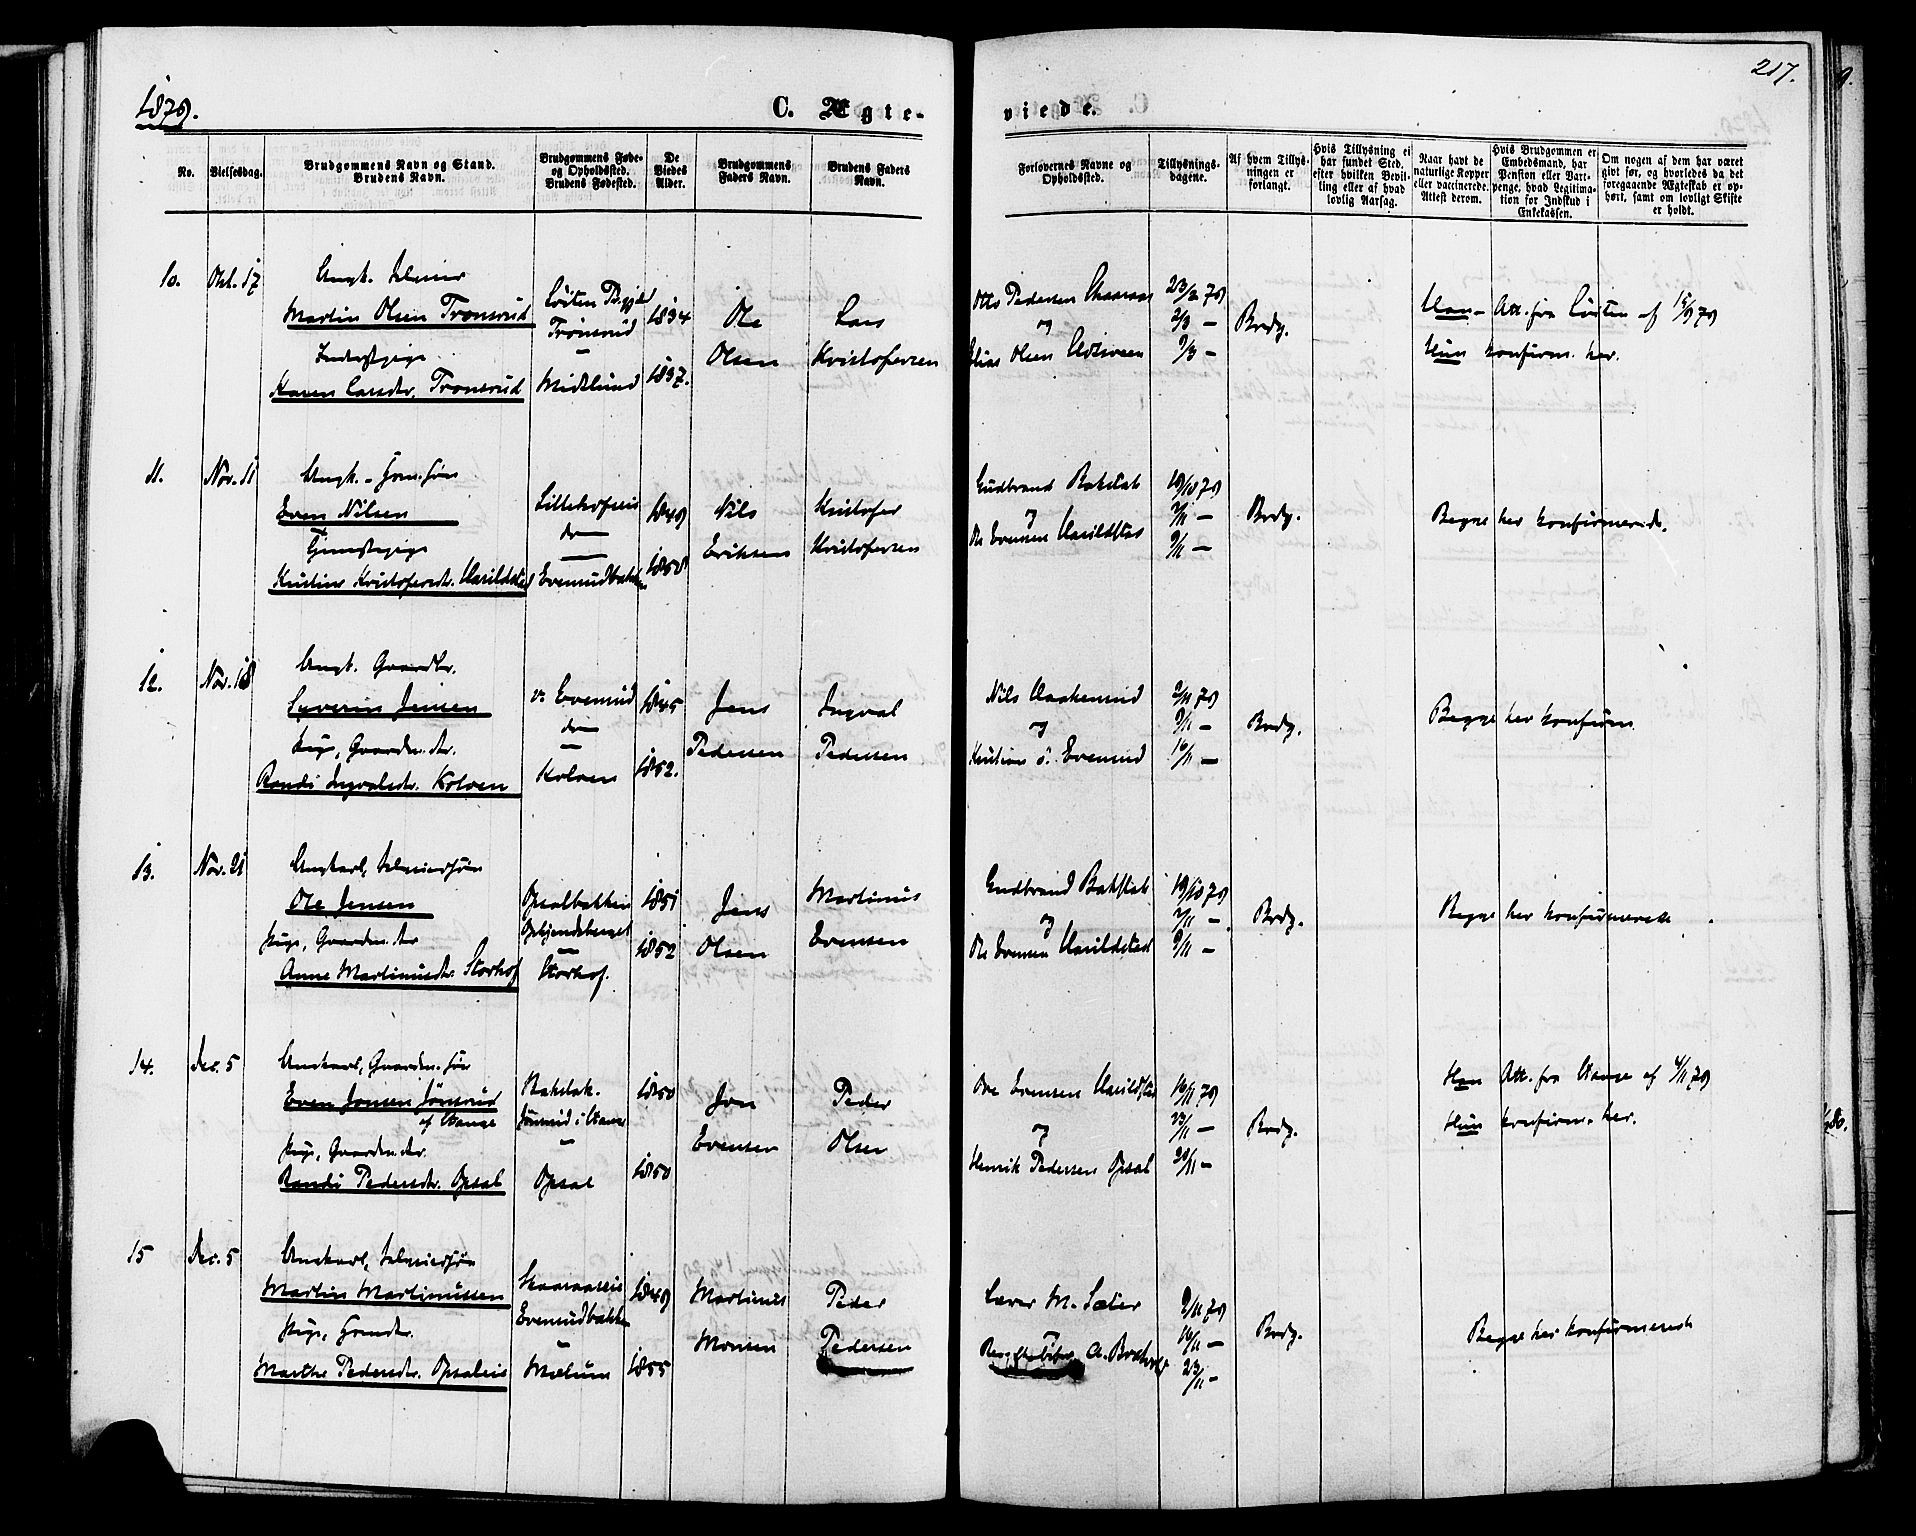 1879.
C. Ægte-
viede.
217.
No.
Vielsesdag.
Brudgommens Navn og Stand.
Brudens Navn.
Brudgommens Føde-
og Opholdssted.
Brudens Fødested.
De
Viedes
Alder.
Brudgommens
Faders Navn.
Brudens Faders
Navn.
Forlovernes Navne og
Opholdssted.
Tillysnings-
dagene.
Af hvem Tillys-
ningen er
forlangt.
Hvis Tillysning ei
har fundet Sted,
efter hvilken Bevil-
ling eller af hvad
lovlig Aarsag.
Naar havt de
naturlige Kopper
eller vaccinerede.
Attest derom.
Hvis Brudgommen er
Embedsmand, har
Pension eller Vart-
penge, hvad Legitima-
tion for Indskud i
Enkekassen.
Om nogen af dem har været
givt før, og hvorledes da det
foregaaende Ægteskab er op-
hørt, samt om lovligt Skifte
er holdt.
10. Okt. 17
Ungk.
Martin Olsen Tronsrud
Karen Larsdtr. Tronsrud
Løiten
Tronsrud
Midtlund
1834
1837.
Ole
Olsen
Lars
Kristofersen
Otto Pedersen
og
Olsen
23/2 79
2/3 —
9/3 —
Brdg.
Han - Att. fra Løiten af 15/9 79
Hun konfirm. her.
11. Nov. 11
Ungk.
Even Nilsen
Kristine Kristofersdtr. Harildstad
Evenrudbakken
1849
1858
Nils
Eriksen
Kristofer
Kristofersen
Gudbrand Bakstad
og
Ole Evensen Harildstad
19/10 79
2/11 —
9/11 —
Brdg.
Begge her konfirmerede.
12. Nov. 18
Ungk. Gaardbr.
Syverin Jensen
Pige, Gaardm.dtr.
Randi Ingvalsdtr. Kolven
v. Evenrud
Kolven
1845
1852.
Jens
Pedersen
Ingval
Pedersen
Nils Haakenrud
og
Kristian Evenrud
2/11 79
9/11 —
16/11 —
Brdg.
Begge her konfirm.
13. Nov. 21
Ungkarl,
Ole Jensen
Pige, Gaardm. dtr
Anne Martinusdtr. Storhof
Opsalbakken
Storhof.
1851
1852
Jens
Olsen
Martinus
Evensen
Gudbrand Bakstad
og
Ole Evensen Harildstad
19/10 79
2/11 —
9/11 —
Brdg.
Begge her konfirmerede
14. Dec. 5
Ungkarl, Gaardm. søn
Even Jonsen Jönsrud
af Stange
Pige, Gaardm. dtr.
Randi Pedersdtr. Opsal
Bakstad.
Jönsrud i Stange
Opsal
1850
1850
Jon
Evensen
Peder
Olsen
Ole Evensen Harildstad
og
Henrik Pedersen Opsal
16/11 79
23/11 —
30/11 —
Brdg.
Han Att. fra Stange af 4/11 79
Hun konfirm. her.
15 Dec. 5
Ungkarl,
Martin Martinussen
Pige,
Marthe Pedersdtr. Opsaleie
Skaaraaseie
Evenrudbakken
Mælum
1849
1855
Martinus
Monsen
Peder
Pedersen
Laver M. Sæter
9/11 79
16/11 —
23/11 —
Brdg.
Begge her konfirmerede